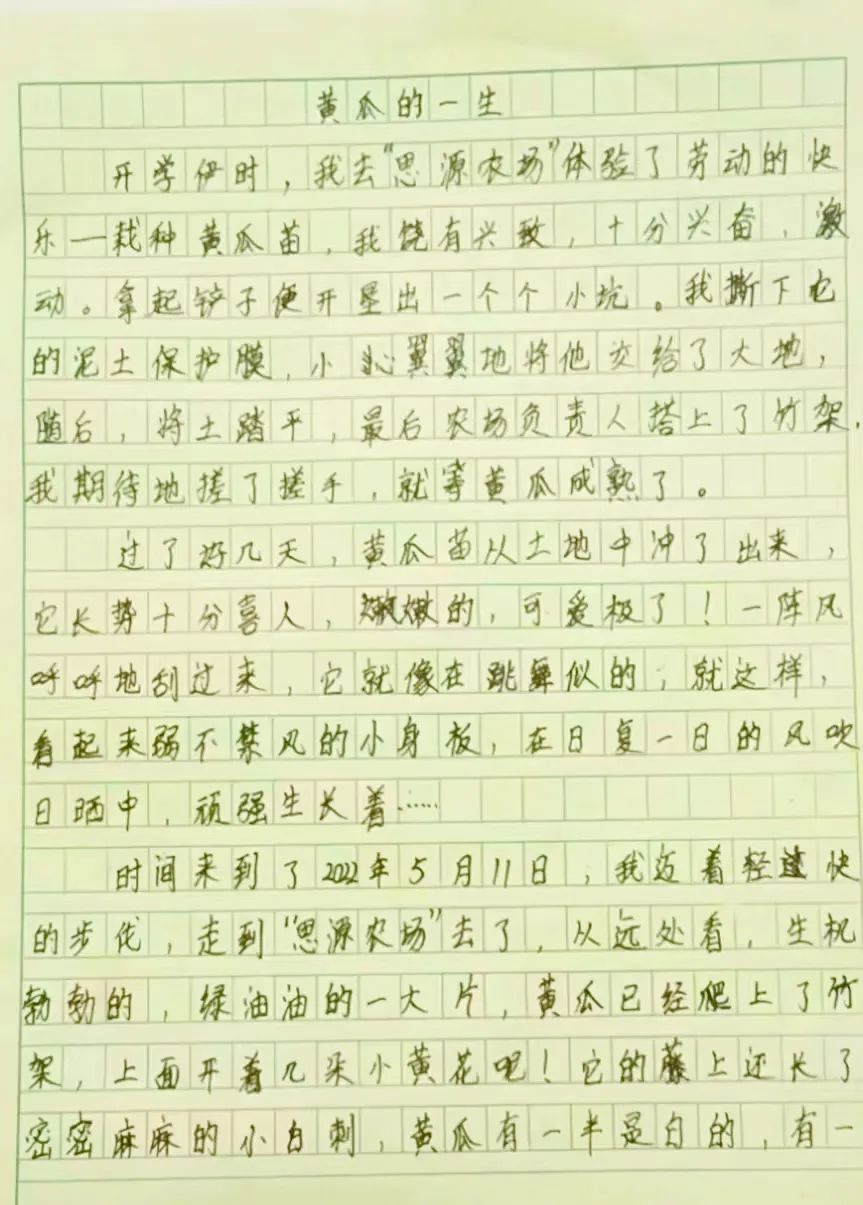 黄瓜的一生
开学伊时，我去“思源农场”体验了劳动的快
乐——栽种黄瓜苗，我饶有兴致，十分兴奋、激
动。拿起铲子便开垦出一个个小坑。我撕下它
的泥土保护膜，小心翼翼地将他交给了大地，
随后，将土踏平，最后农场负责人搭上了竹架，
我期待地搓了搓手，就等黄瓜成熟了。
过了好几天，黄瓜苗从土地中冲了出来，
它长势十分喜人，嫩嫩的，可爱极了！一阵风
呼呼地刮过来，它就像在跳舞似的；就这样，
看起来弱不禁风的小身板，在日复一日的风吹
日晒中，顽强生长着……
时间来到了2022年5月11日，我迈着轻快
的步伐，走到“思源农场”去了，从远处看，生机
勃勃的，绿油油的一大片，黄瓜已经爬上了竹
架，上面开着几朵小黄花呢！它的藤上还长了
密密麻麻的小白刺，黄瓜有一半是白的，有一